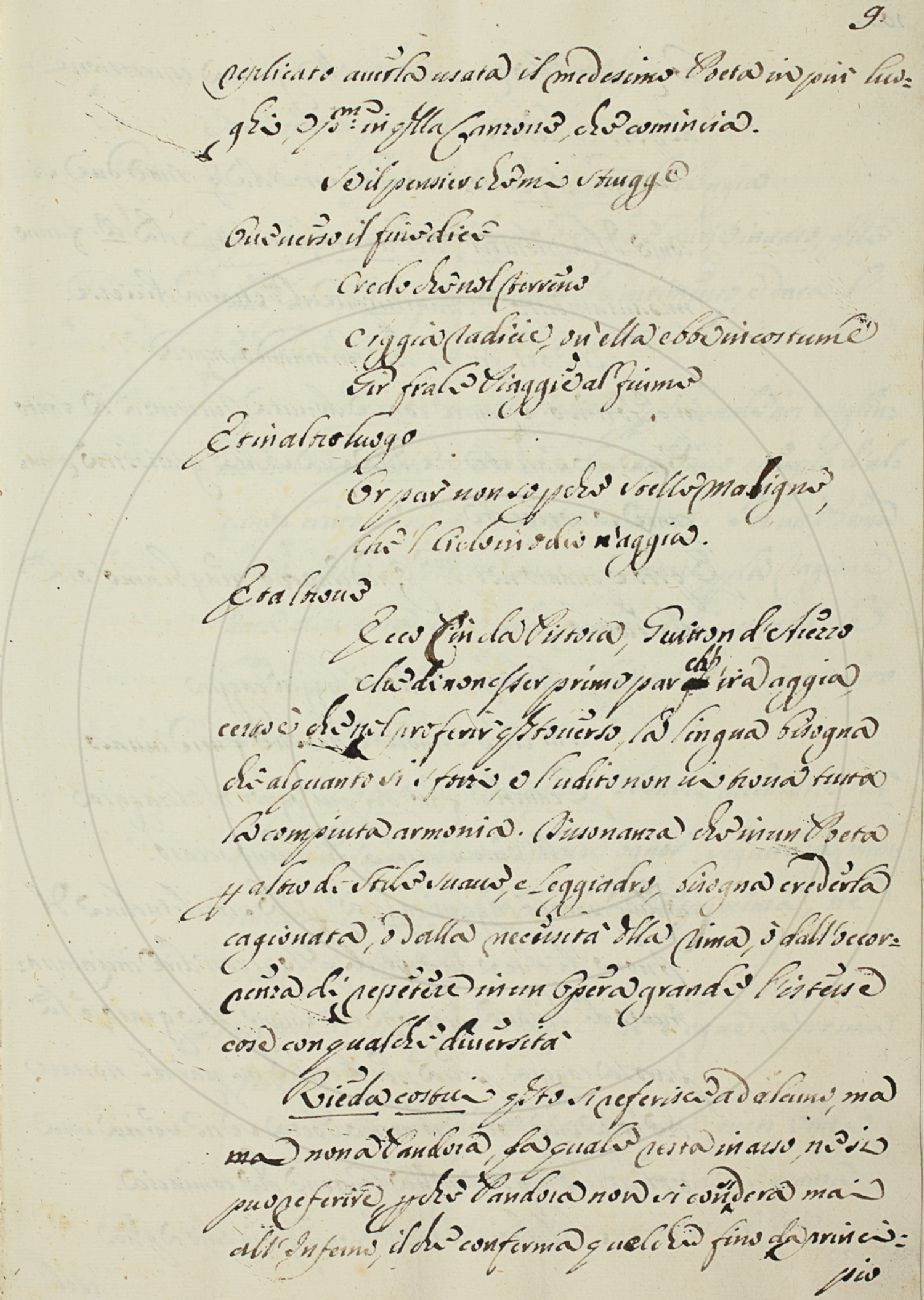 9.
replicato auerla usata il medesimo Poeta in piu luo=
ghi, e pma: in qlla Canzone, che comincia.
Se il pensier che mi strugge
Oue uerso il fine dice
Credo che nel terreno
E iggia radice, ou' ella ebbe in costume
Gir fra le Piaggie al fiume
Et in altro luogo
Or par non so pche stelle maligne,
che 'l Cielo in odio n'aggia.
Et altroue
Ecco Cin da Pistoia, Guitton d'Arezzo
che di non esser primo par ch' ira aggia,
certo è che nel proferir qsto uerso, la lingua bisogna
che alquanto si sforzi, e l'udito non ui troua tutta
la compiuta armonia. Dissonanza che in un Poeta
p altro di stile suaue, e Leggiadro, bisogna crederla
cagionata, ò dalla necessità della rima, ò dall'occor=
renza di repetere in un Opera grande l'istesse
cose con qualche diuersita
Rieda costui qsto si referisce ad alcuno, ma
ma non a Pandora, la quale resta in aso, ne si
puo referire, pche Pandora non si conderà mai
all' Inferno, il che conferma quel che fino da princi=
pio